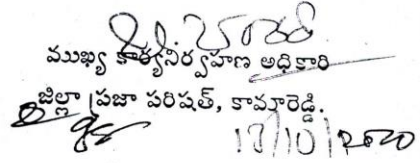 ముఖ్య కార్యనిర్వహణ అధికారి
జిల్లా ప్రజా పరిషత్, కామారెడ్డి.
13/10/2020